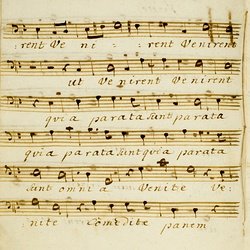 rent Ve ni - rent Venirent
ut Venirent Venirent
quia parata sunt parata
quia parata sunt quia parata
sunt omnia Venite Ve-
nite Comedite panem